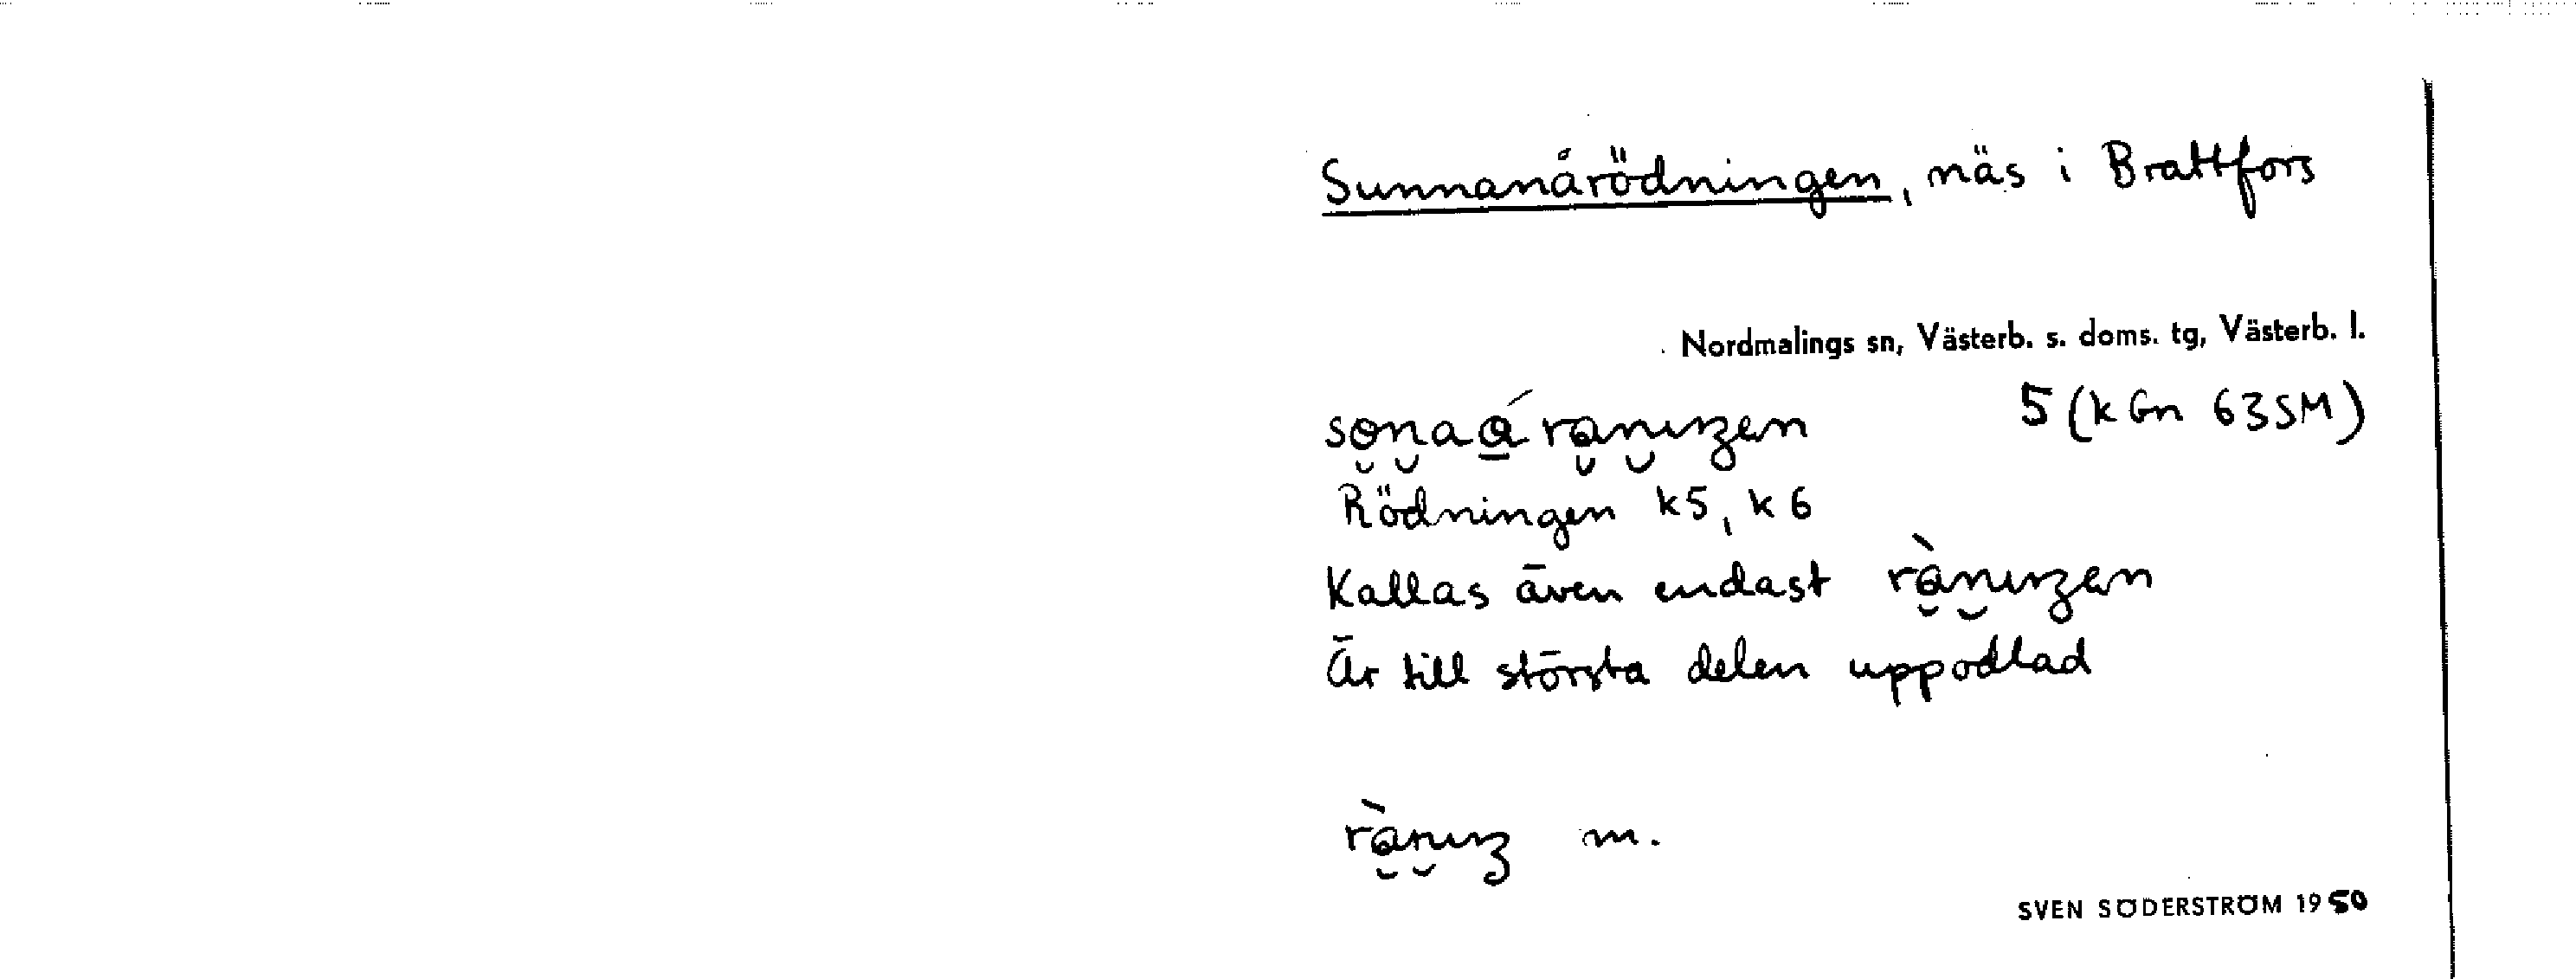 Sunnanårödningen, näs i Brattfors
Nordmalings sn, Västerb. s. doms. tg, Västerb. l.
5 (k Gn 63SM)
Rödningen k5, k6
Kallas även endast
Är till största delen uppodlad
m.
SVEN SÖDERSTRÖM 1950